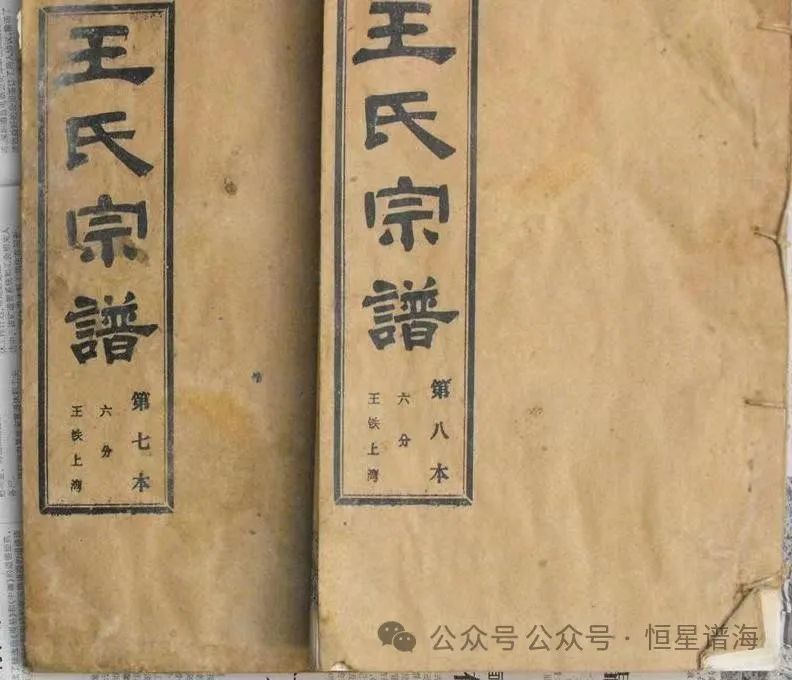 王氏宗譜
第七本
六分
王铁上湾
王氏宗譜
第八本
六分
王铁上湾
公众号 公众号 · 恒星谱海